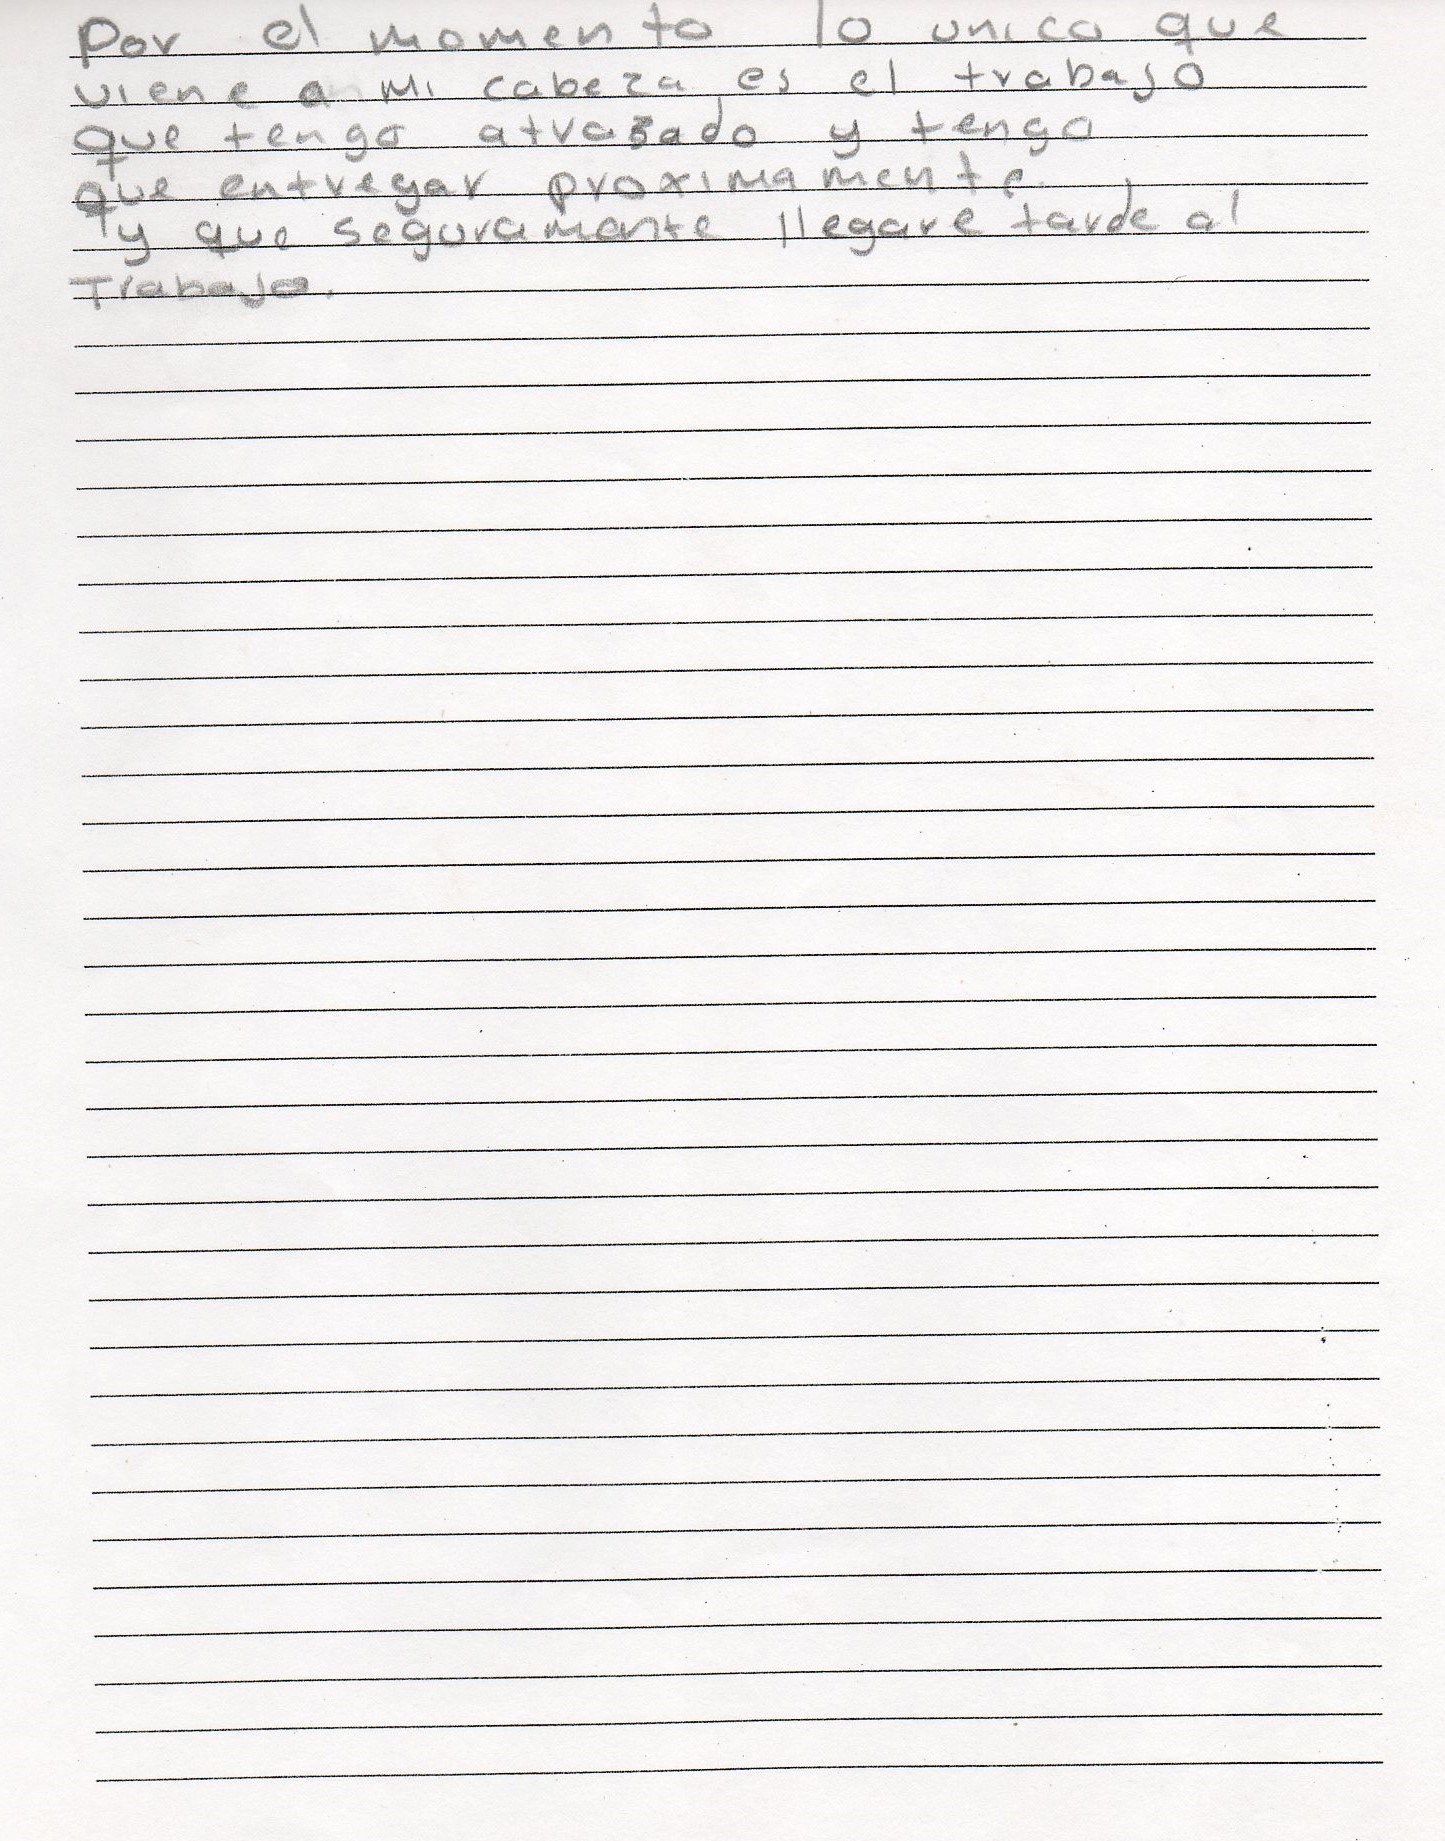 Por el momento lo unico que
viene a mi cabeza es el trabajo
que tengo atrasado y tengo
que entregar proximamente.
y que seguramante llegare tarde al
Trabajo.